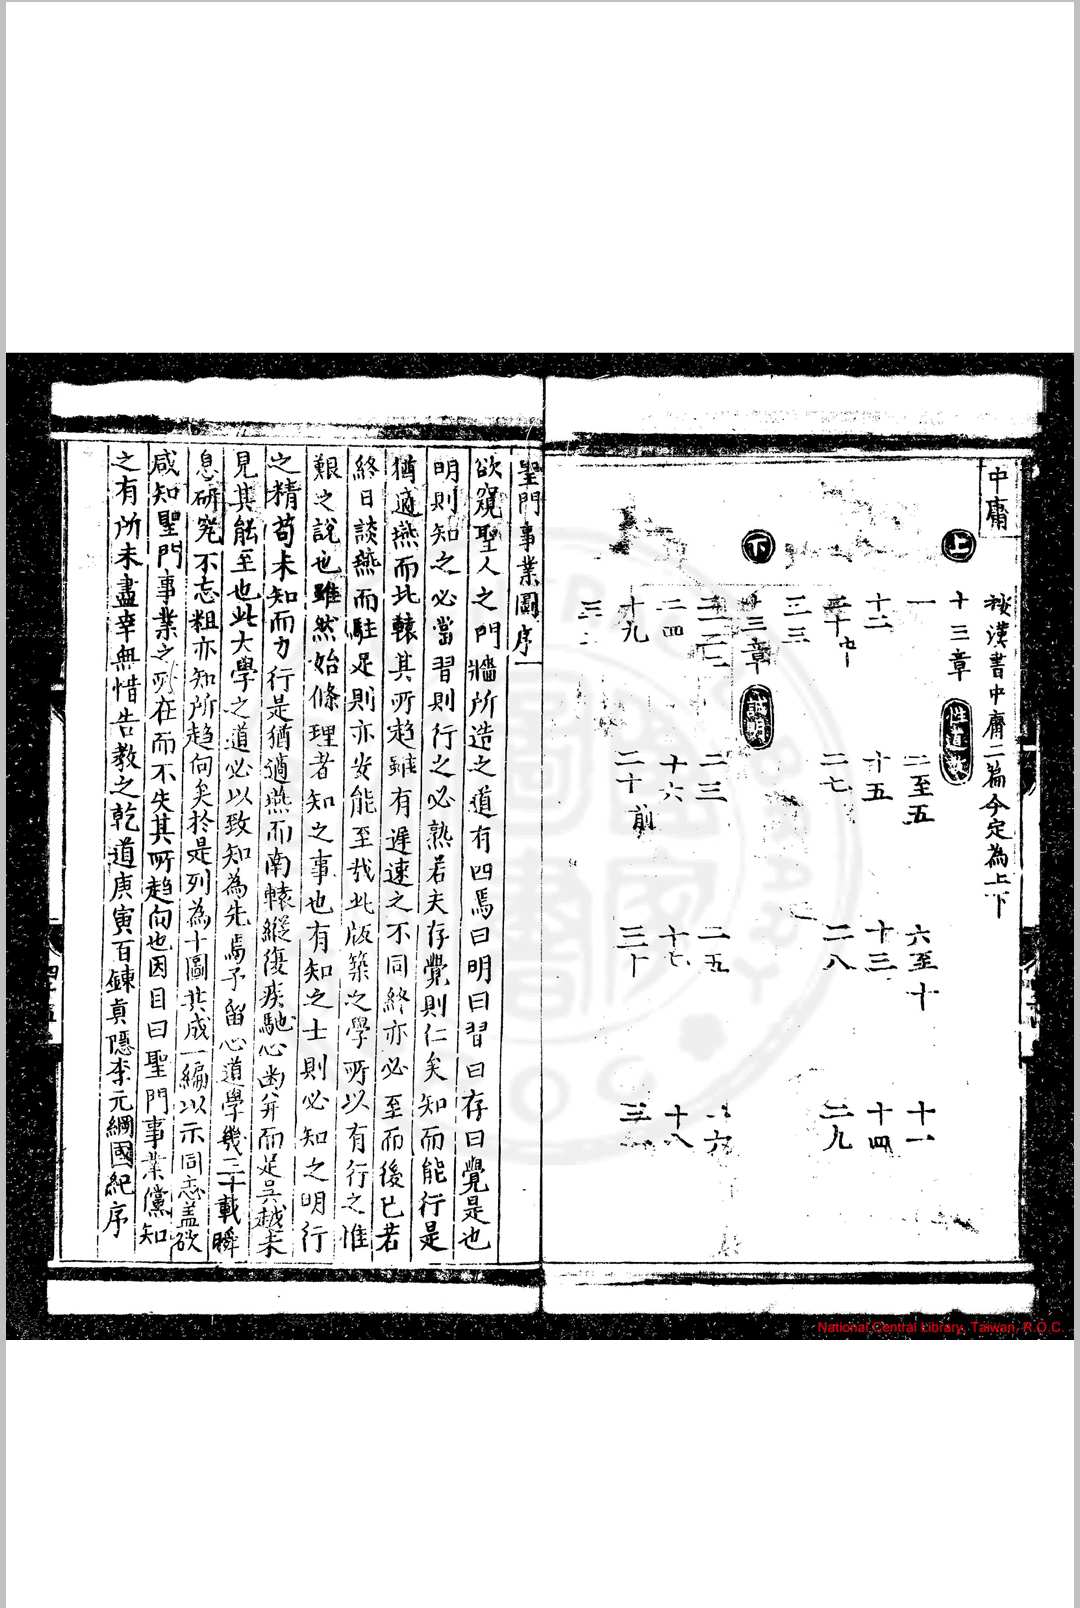 中庸
按漢書中庸二篇今定為上下
上
十三章
性道教
一
二至五
六至十
十一
十二
十五
十三
十四
二十中
二七
二八
二九
三三
下
誠明
二三
二五
二四
十六
十七
十八
十九
二十前
聖門事業圖序
欲窺聖人之門牆所造之道有四焉曰明曰習曰存曰覺是也
明則知之必當習則行之必熟若夫存覺則仁矣知而能行是
猶適燕而北轅其所趍雖有遲速之不同終亦必至而後已若
終日談燕而駐足則亦安能至哉此版築之學所以有行之惟
艱之說也雖然始條理者知之事也有知之士則必知之明行
之精苟未知而力行是猶適燕而南轅縱復疾馳心幽并而足吳越未
見其能至也此大學之道必以致知為先焉予留心道學幾二十載瞬
息研究不忘粗亦知所趍向矣於是列為十圖共成一編以示同志蓋欲
咸知聖門事業之所在而不失其所趍向也因目曰聖門事業儻知
之有所未盡幸無惜告教之乾道庚寅百鍊真隱李元綱國紀序
National Central Library, Taiwan, R.O.C.